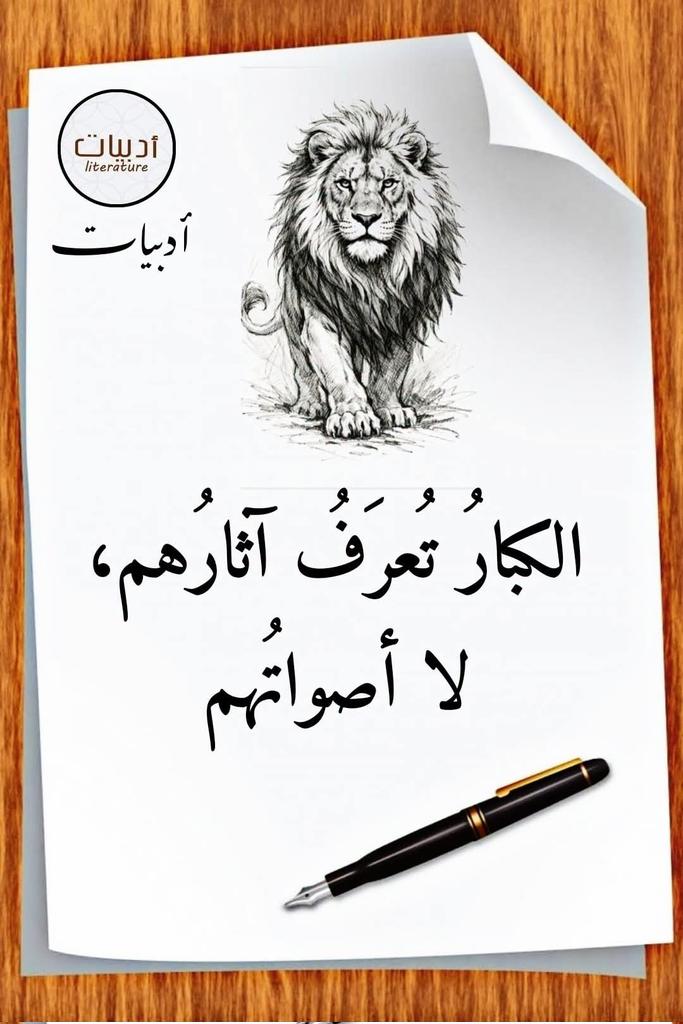 أدبيات
literature
أدبيات
الكبارُ تُعرَفُ آثارُهم،
لا أصواتُهم